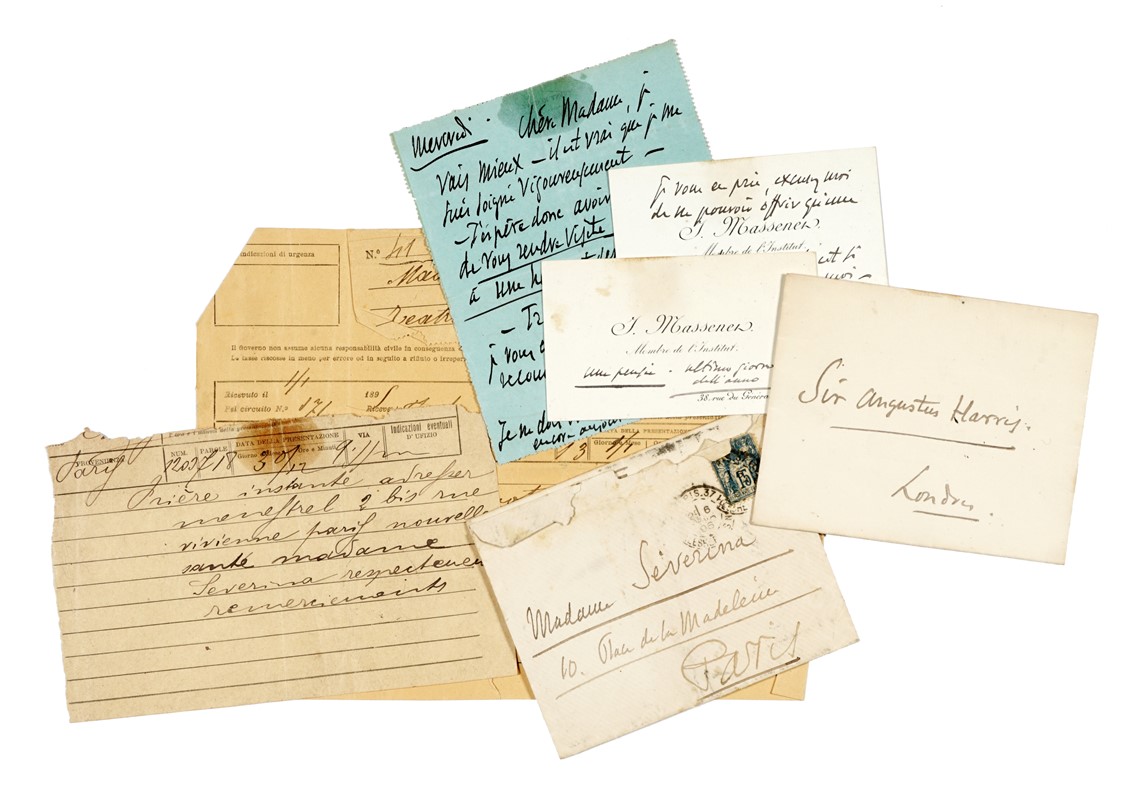 Mercredi. Chère Madame, je
vais mieux — il est vrai que je me
suis soigné vigoureusement —
— J'espère donc avoir
de vous rendre visite
à une
je vous
Je ne
encore
Je vous en prie, excusez moi
de ne pouvoir offrir qu'une
J. Massenet.
Membre de l'Institut.
J. Massenet.
Membre de l'Institut.
une pensée - ultimo giorno
dell'anno
38. rue du Général
Sir Augustus Harris.
Londres.
Indicazioni di urgenza
N.º 41
Mad
Teat
Il Governo non assume alcuna responsabilità civile in conseguenza d
Le tasse riscosse in meno per errore od in seguito a rifiuto o irreper
Ricevuto il 1/1 189
Pel circuito N.º
DATA DELLA PRESENTAZIONE
Giorno e Mese
PROVENIENZA
Paris
NUM.
PAROLE
DATA DELLA PRESENTAZIONE
Giorno e Mese
Ore e Minuti
VIA
Indicazioni eventuali
D'UFIZIO
12027 18 30/12
Prière instante adresser
menestrel 2 bis rue
vivienne paris nouvelle
santé madame
Severina respectueu
remerciments
15
Madame Séverina
10. Place de la Madeleine
Paris